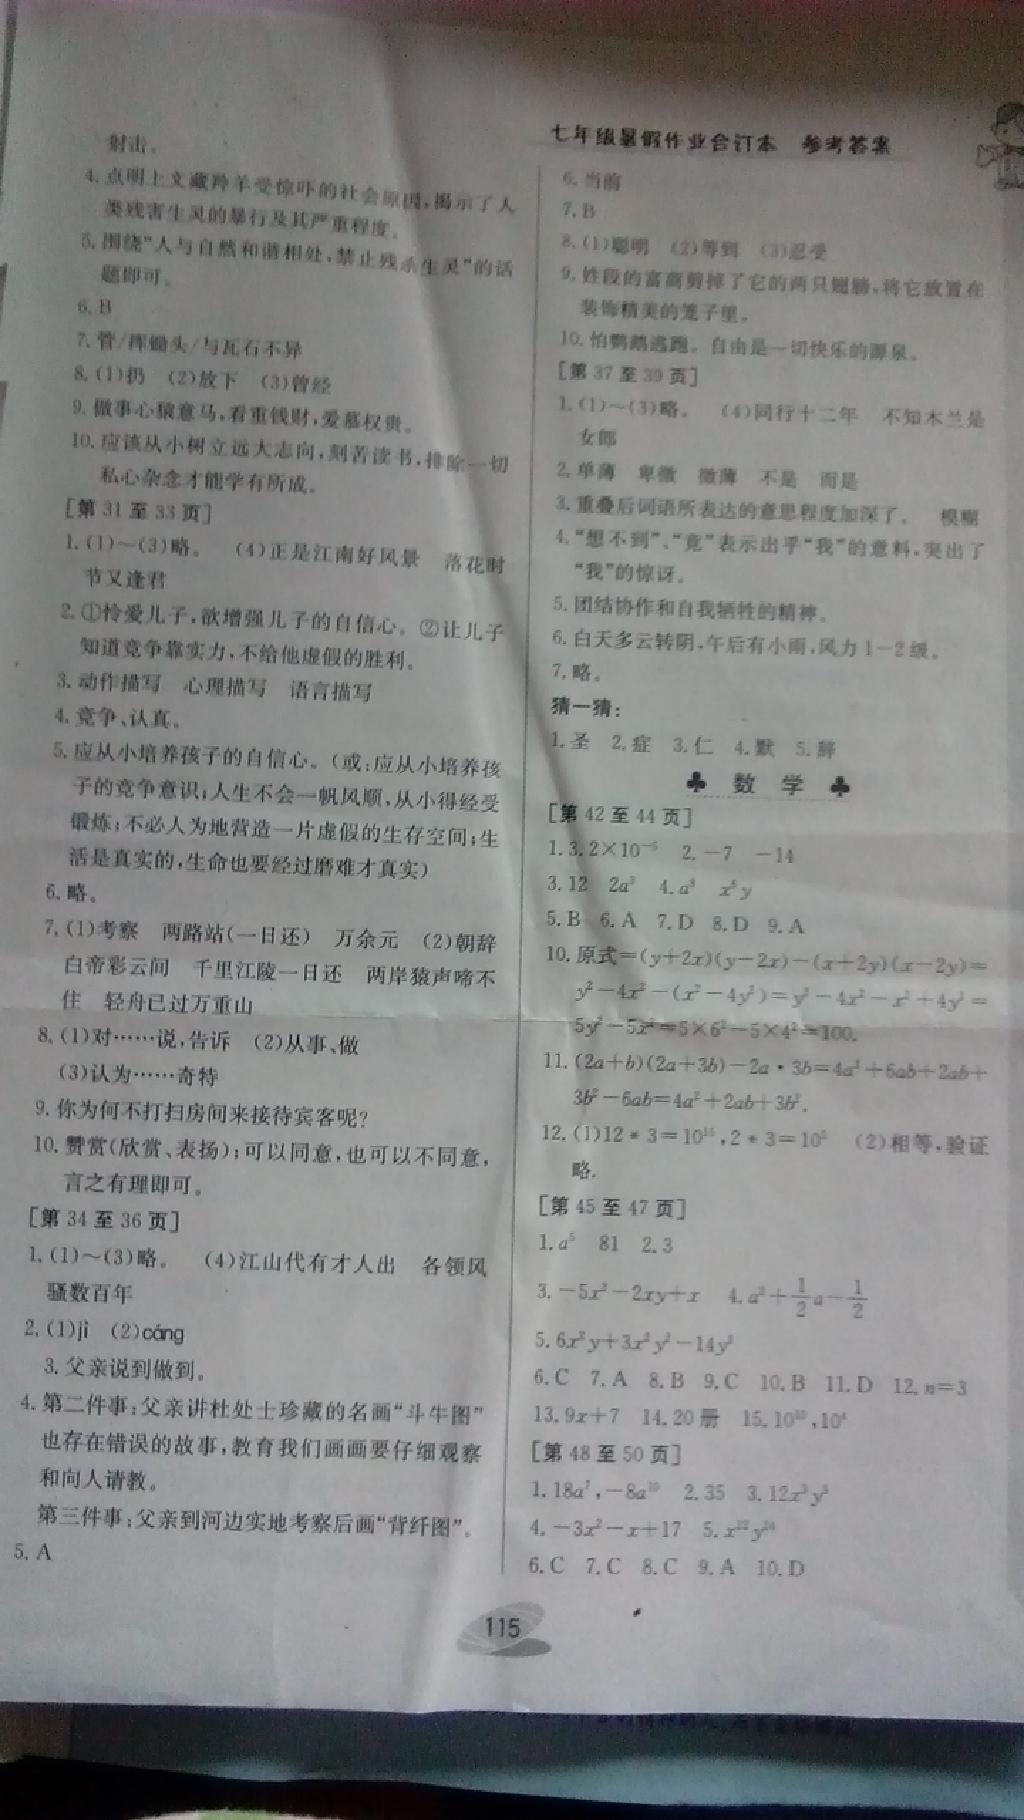 七年级暑假作业合订本 参考答案
射击。
4.点明上文藏羚羊受惊吓的社会原因,揭示了人
类残害生灵的暴行及其严重程度。
5.围绕“人与自然和谐相处,禁止残杀生灵”的话
题即可。
6.B
7.管/挥锄头/与瓦石不异
8.(1)扔 (2)放下 (3)曾经
9.做事心猿意马,看重钱财,爱慕权贵。
10.应该从小树立远大志向,刻苦读书,排除一切
私心杂念才能学有所成。
[第 31 至 33 页]
1.(1)~(3)略。 (4)正是江南好风景 落花时
节又逢君
2.①怜爱儿子,欲增强儿子的自信心。②让儿子
知道竞争靠实力,不给他虚假的胜利。
3.动作描写 心理描写 语言描写
4.竞争、认真。
5.应从小培养孩子的自信心。(或:应从小培养孩
子的竞争意识;人生不会一帆风顺,从小得经受
锻炼;不必人为地营造一片虚假的生存空间;生
活是真实的,生命也要经过磨难才真实)
6.略。
7.(1)考察 两路站(一日还) 万余元 (2)朝辞
白帝彩云间 千里江陵一日还 两岸猿声啼不
住 轻舟已过万重山
8.(1)对……说,告诉 (2)从事、做
(3)认为……奇特
9.你为何不打扫房间来接待宾客呢?
10.赞赏(欣赏、表扬);可以同意,也可以不同意,
言之有理即可。
[第 34 至 36 页]
1.(1)~(3)略。 (4)江山代有才人出 各领风
骚数百年
2.(1)jì (2)cáng
3.父亲说到做到。
4.第二件事:父亲讲杜处士珍藏的名画“斗牛图”
也存在错误的故事,教育我们画画要仔细观察
和向人请教。
第三件事:父亲到河边实地考察后画“背纤图”。
5.A
6.当前
7.B
8.(1)聪明 (2)等到 (3)忍受
9.姓段的富商剪掉了它的两只翅膀,将它放置在
装饰精美的笼子里。
10.怕鹦鹉逃跑。自由是一切快乐的源泉。
[第 37 至 39 页]
1.(1)~(3)略。 (4)同行十二年 不知木兰是
女郎
2.单薄 卑微 微薄 不是 而是
3.重叠后词语所表达的意思程度加深了。 模糊
4.“想不到”、“竟”表示出乎“我”的意料,突出了
“我”的惊讶。
5.团结协作和自我牺牲的精神。
6.白天多云转阴,午后有小雨,风力1-2级。
7.略。
猜一猜:
1.圣 2.症 3.仁 4.默 5.辞
♣ 数 学 ♣
[第 42 至 44 页]
1.3.2×10⁻⁵ 2.-7 -14
3.12 2a² 4.a⁸ x⁵y
5.B 6.A 7.D 8.D 9.A
10.原式=(y+2x)(y-2x)-(x+2y)(x-2y)=
y²-4x²-(x²-4y²)=y²-4x²-x²+4y²=
5y²-5x²=5×6²-5×4²=100.
11.(2a+b)(2a+3b)-2a·3b=4a²+6ab+2ab+
3b²-6ab=4a²+2ab+3b².
12.(1)12*3=10¹⁵,2*3=10⁵ (2)相等,验证
略.
[第 45 至 47 页]
1.a⁵ 81 2.3
3.-5x²-2xy+x 4.a²+1/2a-1/2
5.6x²y+3x²y²-14y³
6.C 7.A 8.B 9.C 10.B 11.D 12.n=3
13.9x+7 14.20 册 15.10¹⁰,10⁴
[第 48 至 50 页]
1.18a⁷,-8a¹⁰ 2.35 3.12x³y³
4.-3x²-x+17 5.x²²y²⁴
6.C 7.C 8.C 9.A 10.D
115